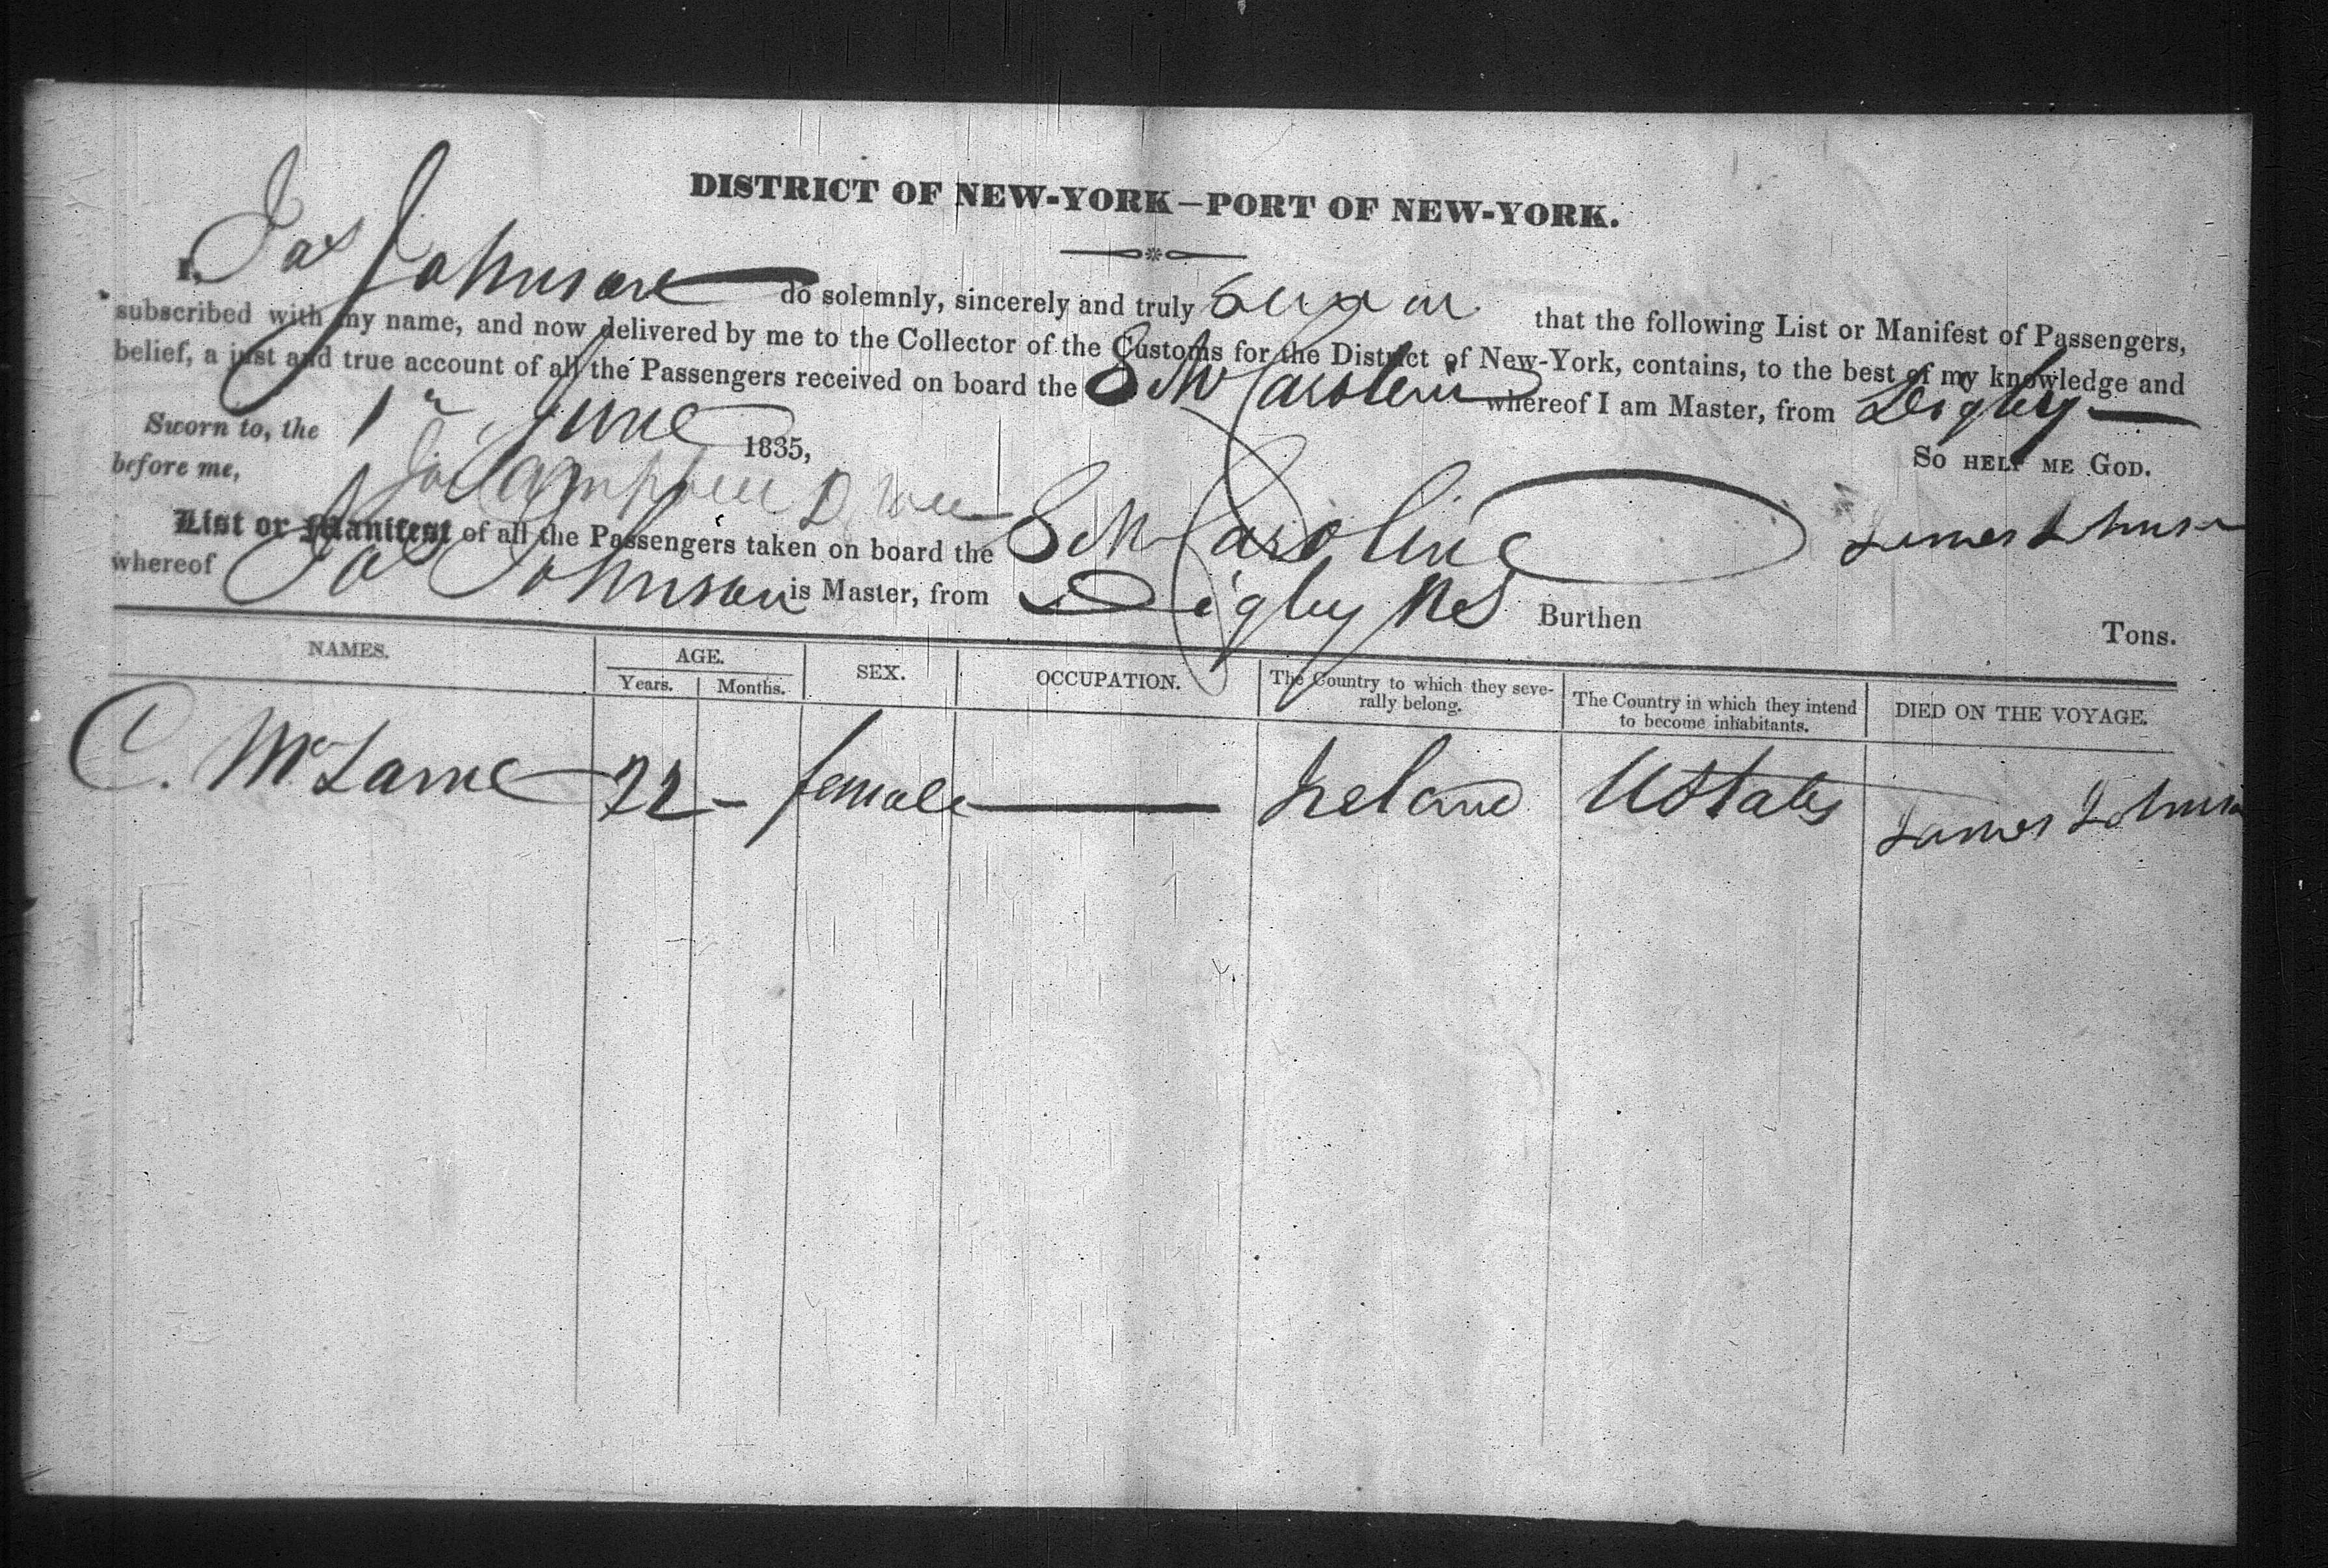 DISTRICT OF NEW-YORK—PORT OF NEW-YORK.
I, Jas Johnson do solemnly, sincerely and truly swear that the following List or Manifest of Passengers,
subscribed with my name, and now delivered by me to the Collector of the Customs for the District of New-York, contains, to the best of my knowledge and
belief, a just and true account of all the Passengers received on board the Schr Caroline whereof I am Master, from Digby
Sworn to, the 1st June 1835, So HELP ME GOD.
before me,
James Johnson
List or Manifest of all the Passengers taken on board the Schr Caroline
whereof Jas Johnson is Master, from Digby NS Burthen Tons.
NAMES. AGE. SEX. OCCUPATION. The Country to which they seve-rally belong. The Country in which they intend to become inhabitants. DIED ON THE VOYAGE.
Years. Months.
C. McLarne 22 - female — Ireland UStates James Johnson